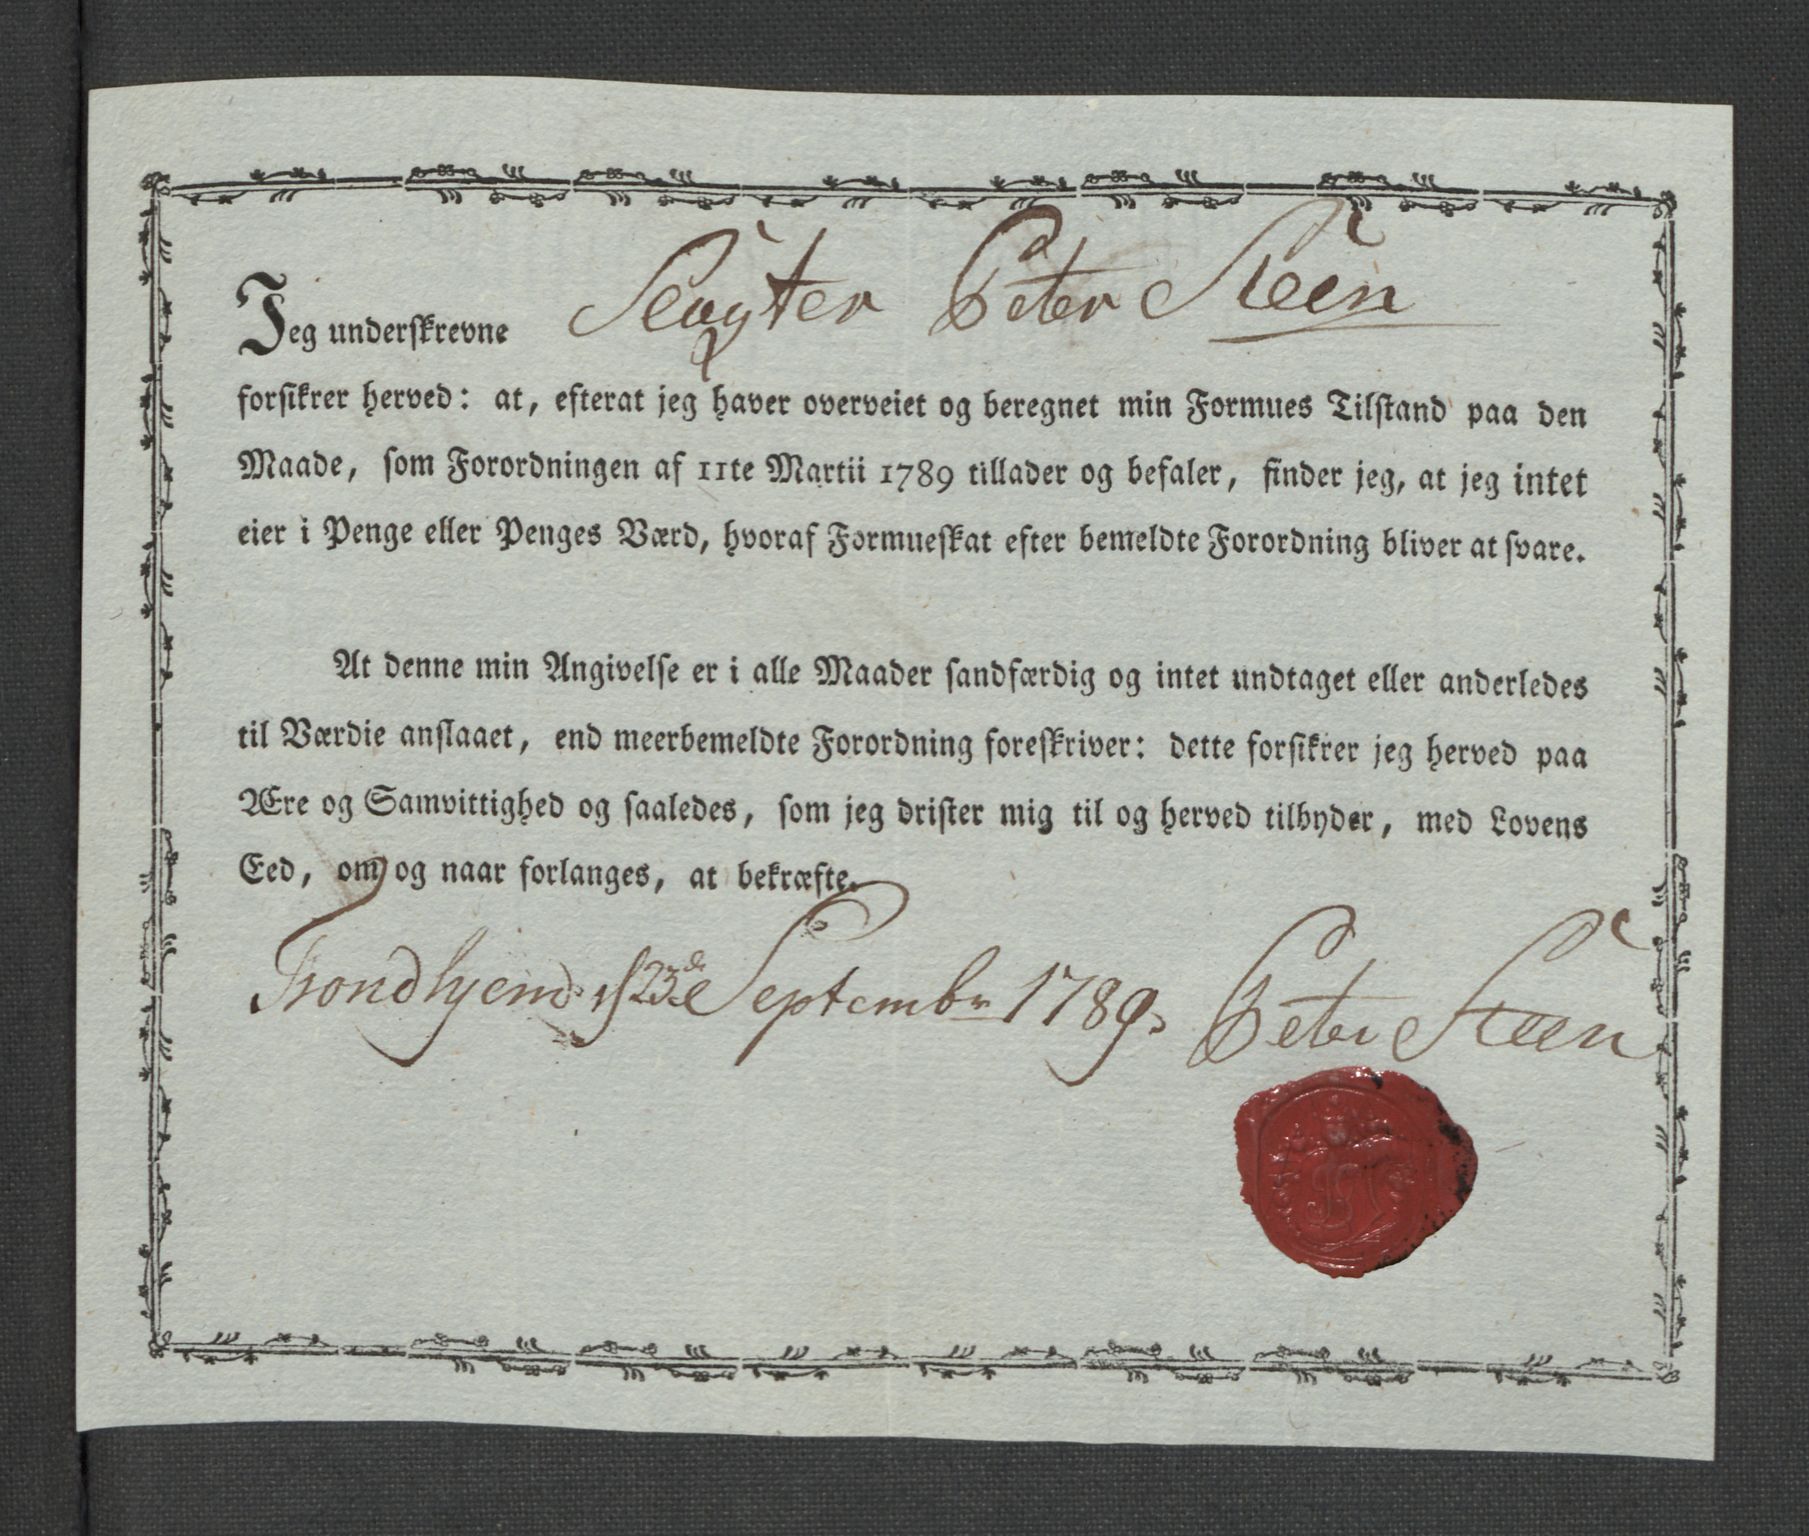 Jeg underskrevne Slagter Peter Steen
forsikrer herved: at, efterat jeg haver overveiet og beregnet min Formues Tilstand paa den
Maade, som Forordningen af 11te Martii 1789 tillader og befaler, finder jeg, at jeg intet
eier i Penge eller Penges Værd, hvoraf Formueskat efter bemeldte Forordning bliver at svare.
At denne min Angivelse er i alle Maader sandfærdig og intet undtaget eller anderledes
til Værdie anslaaet, end meerbemeldte Forordning foreskriver: dette forsikrer jeg herved paa
Ære og Samvittighed og saaledes, som jeg drister mig til og herved tilbyder, med Lovens
Eed, om og naar forlanges, at bekræfte.
Trondhjem d 23de Septembr 1789. Peter Steen